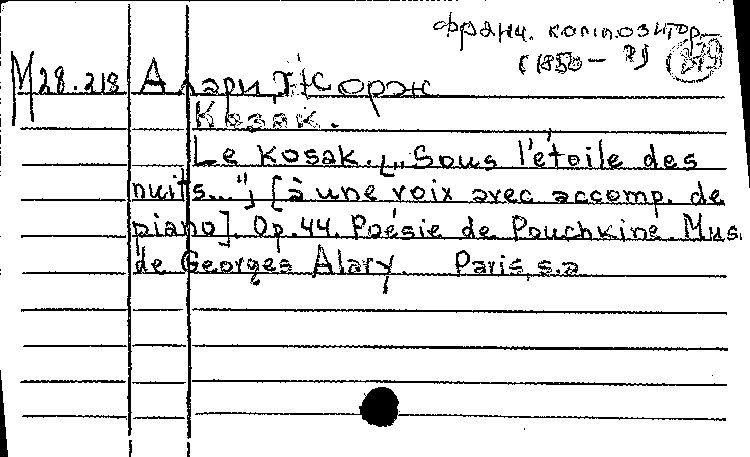 франц. композитор
(1850 – ?)
М 28.218 Алари, Жорж
Казак.
Le Kosak. [„Sous l'étoile des
nuits..."] [à une voix avec accomp. de
piano]. Op. 44. Poésie de Pouchkine. Mus.
de Georges Alary. Paris, s.a